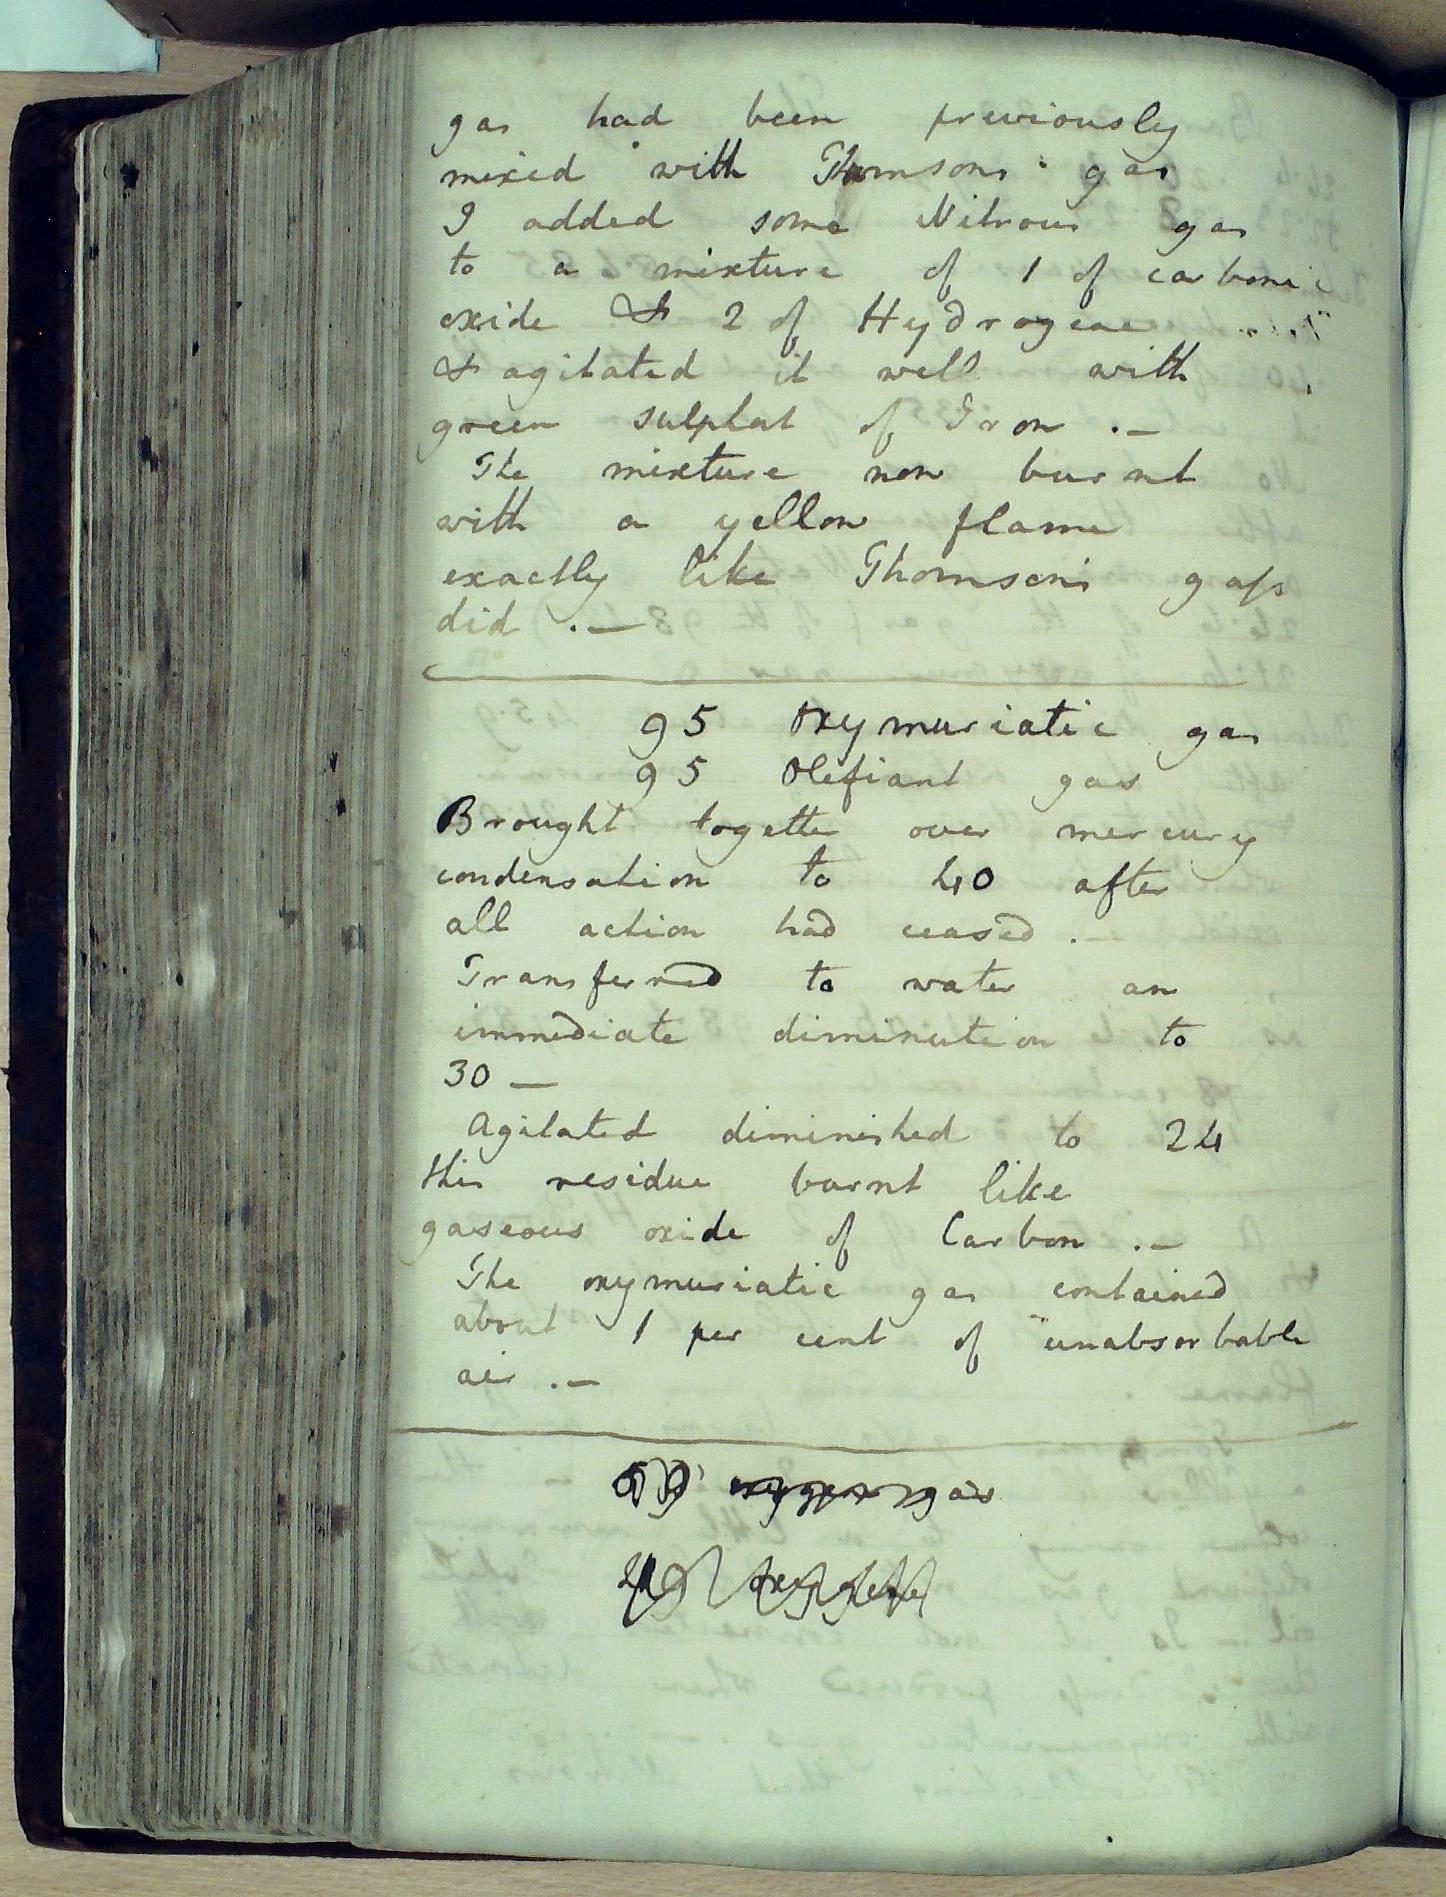 gas had been previously
mixed with Thomsons gas
I added some Nitrous gas
to a mixture of 1 of carbonic
oxide & 2 of Hydrogene
& agitated it well with
green sulphat of Iron .—
The mixture now burnt
with a yellow flame
exactly like Thomsons gass
did .—
95 Oxymuriatic gas
95 Olefiant gas
Brought together over mercury
condensation to 40 after
all action had ceased .—
Transferred to water an
immediate diminution to
30 —
Agitated diminished to 24
this residue burnt like
gaseous oxide of Carbon .—
The oxymuriatic gas contained
about 1 per cent of unabsorbable
air .—